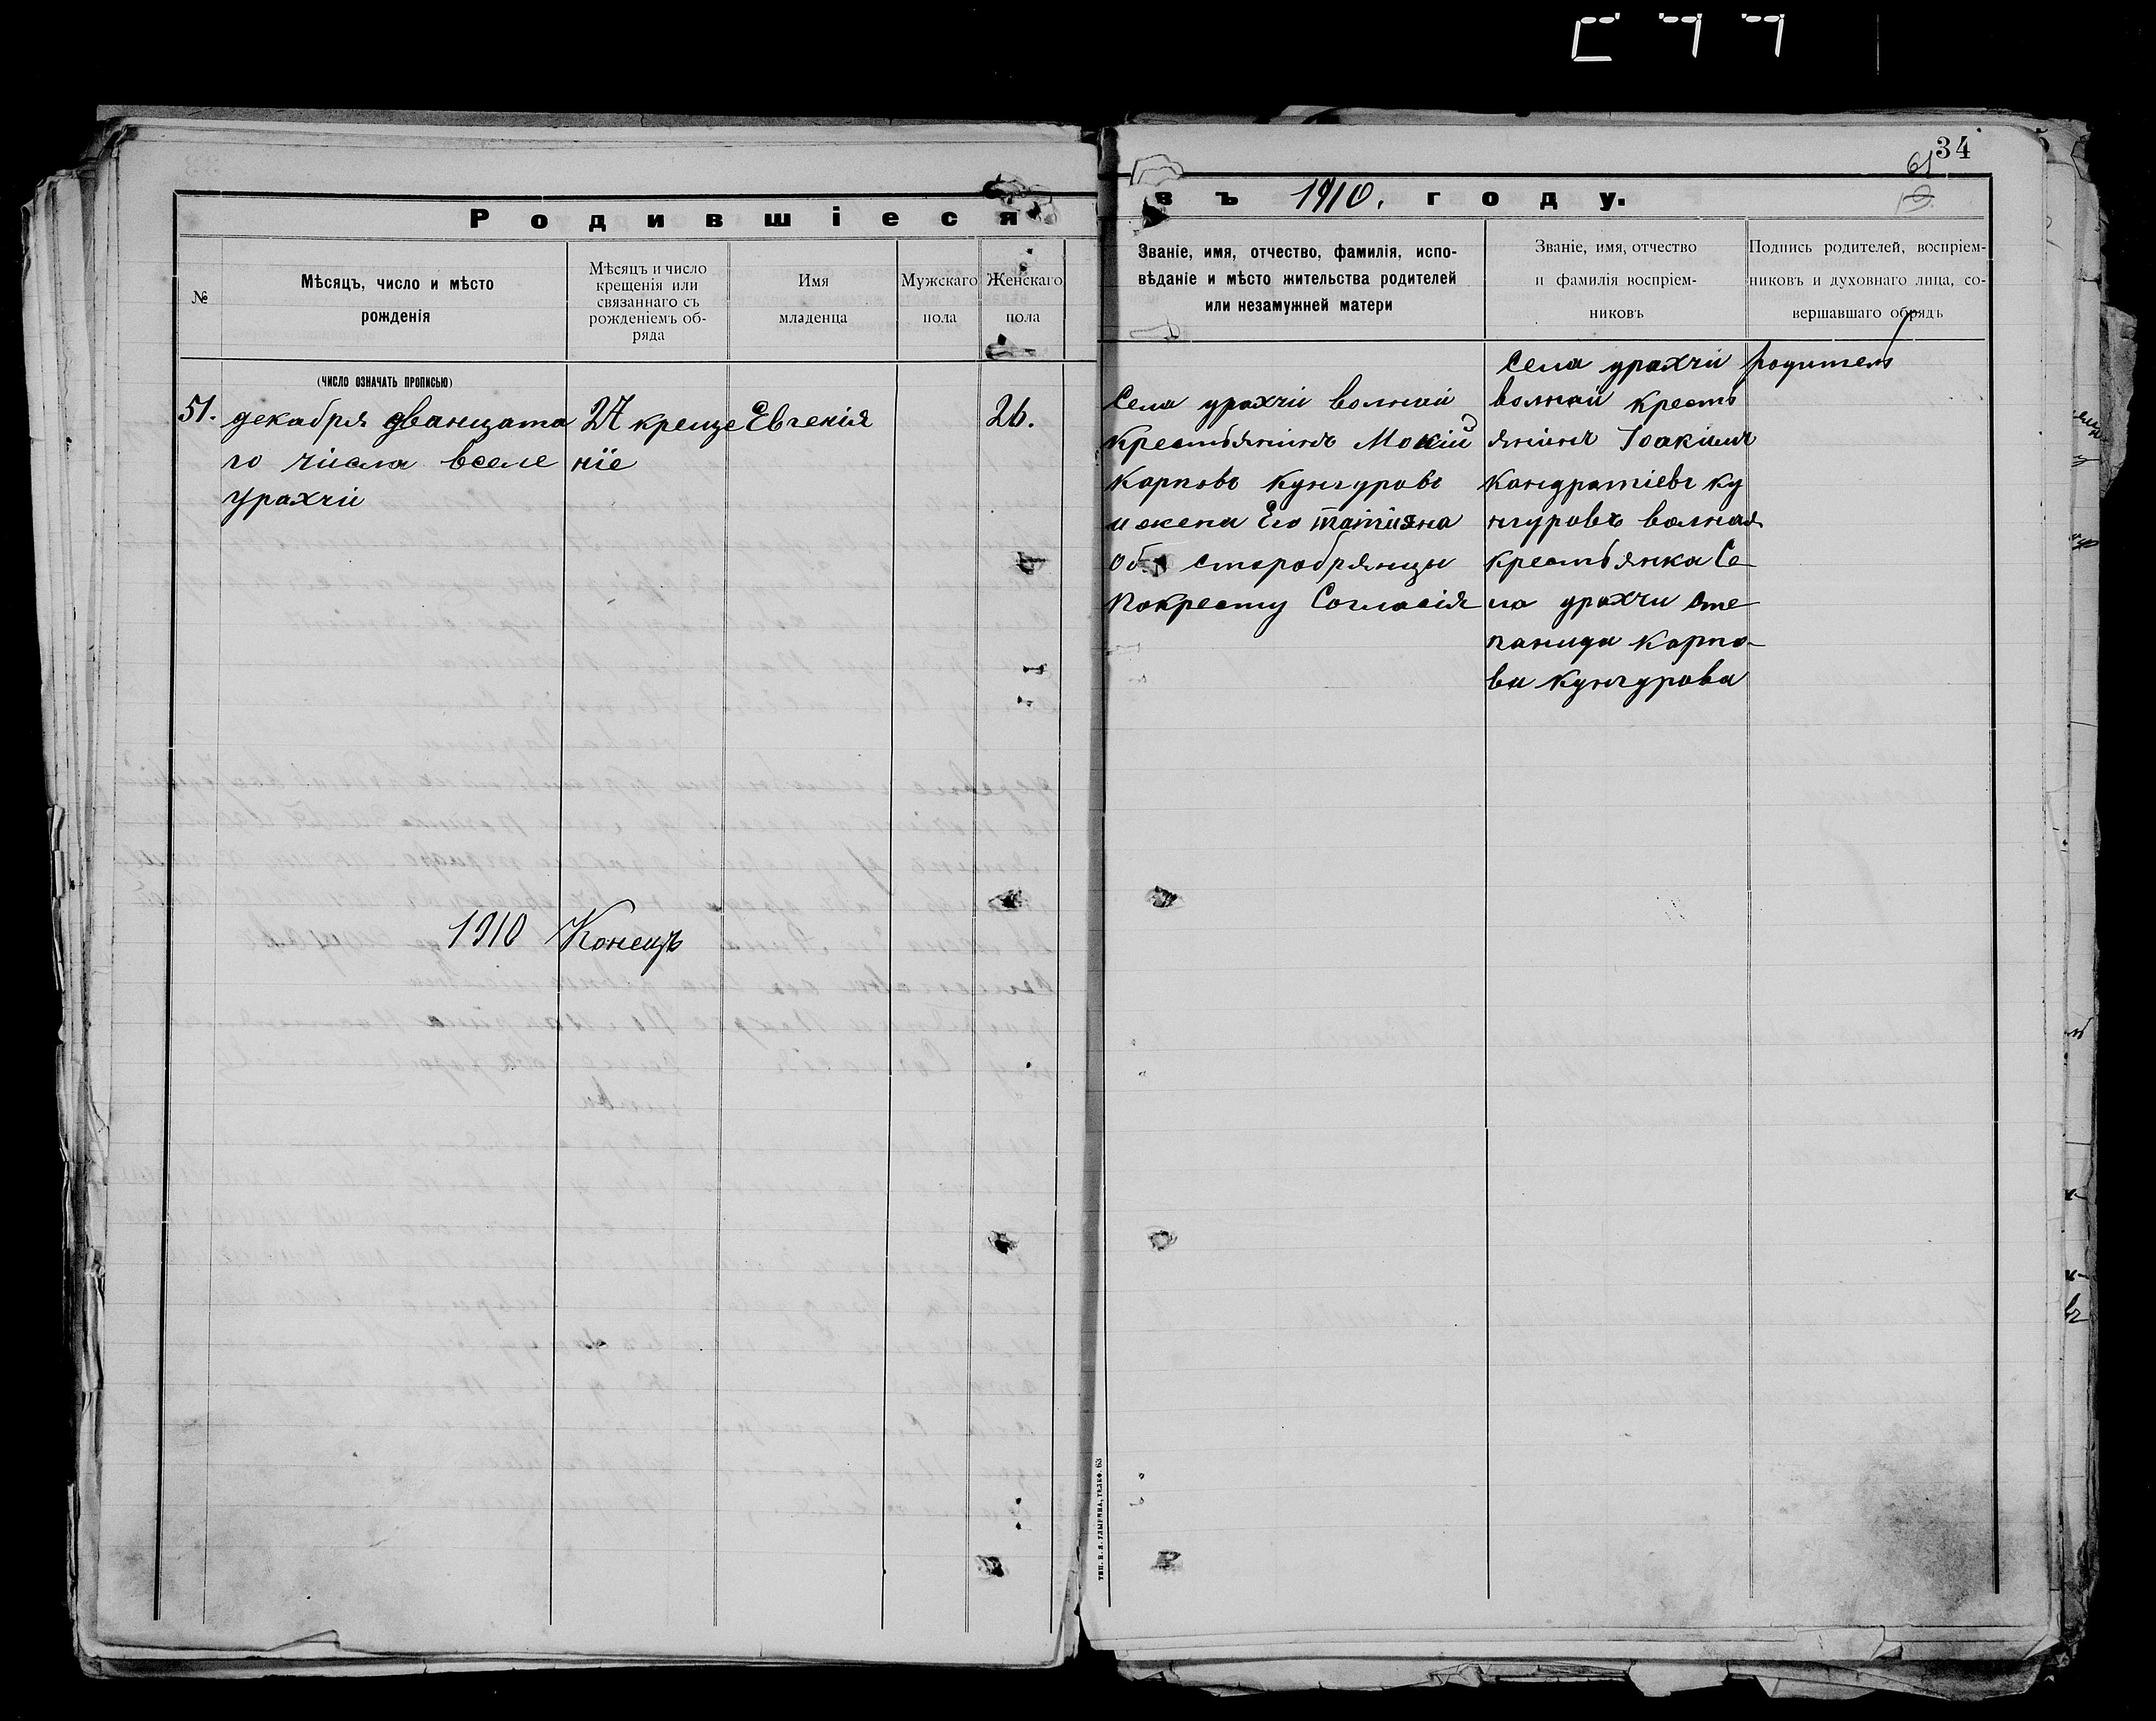 34
61
Родившіеся
въ 1910. году.
№
Мѣсяцъ, число и мѣсто
рожденія
Мѣсяцъ и число
крещенія или
связаннаго съ
рожденіемъ об-
ряда
Имя
младенца
Мужскаго
пола
Женскаго
пола
Званіе, имя, отчество, фамилія, испо-
вѣданіе и мѣсто жительства родителей
или незамужней матери
Званіе, имя, отчество
и фамилія воспріем-
никовъ
Подпись родителей, воспріем-
никовъ и духовнаго лица, со-
вершавшаго обрядъ
(число означать прописью)
51.
декабря дванцата
го числа вселе
Урахчи
27 креще
ніе
Евгенія
26.
Села урахчи волнай
крестьянинъ Мокій
Карповъ Кунгуровъ
и жена Его татияна
об старобрянцы
покресту Согласія
Села урахчи
волнай кресть
янинъ Іоакимъ
Кандратіевъ Ку
нгуровъ волная
крестьянка Се
ла урахчи Сте
панида Карпо-
ва Кунгурова
родитель
1910 Конецъ
ТИП. В. Я. УЛЫБИНА, ТЕЛЕФ. 63